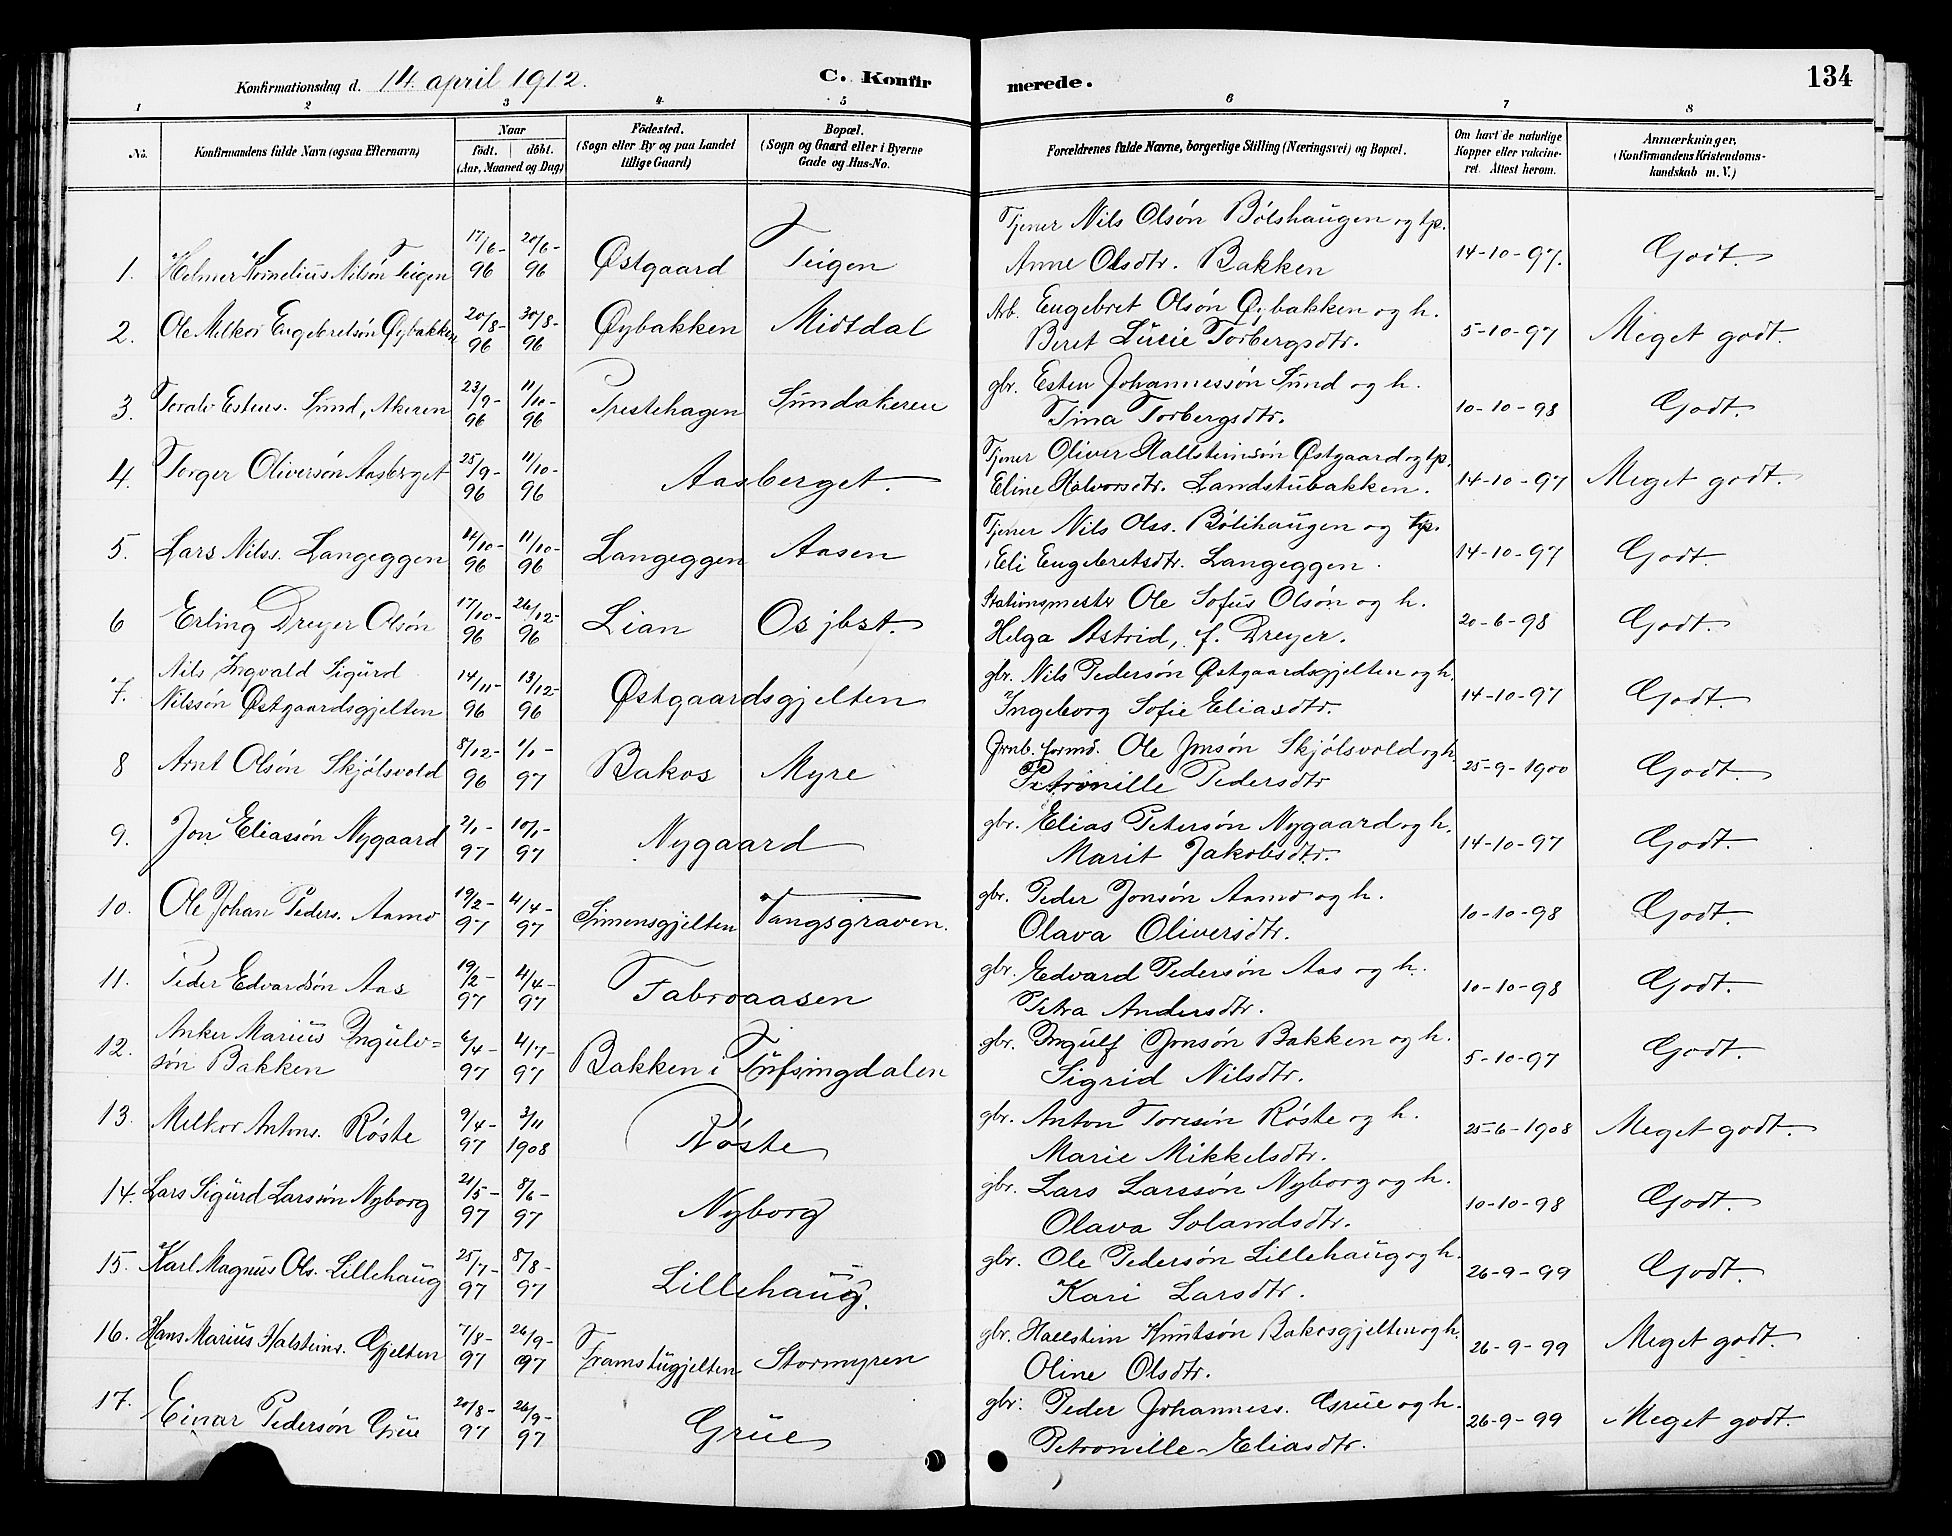 Konfirmationsdag d. 14. april 1912. C. Konfirmerede. 134
1 2 3 4 5 6 7 8
No. Konfirmandens fulde Navn (ogsaa Efternavn) Naar födt. döbt. (Aar, Maaned og Dag) Födested. (Sogn eller By og paa Landet tillige Gaard) Bopæl. (Sogn og Gaard eller i Byerne Gade og Hus-No. Forældrenes fulde Navne, borgerlige Stilling (Næringsvei) og Bopæl. Om havt de naturlige Kopper eller vakcineret. Attest herom. Anmærkninger. (Konfirmandens Kristendomskundskab m. V.)
1. Helmer Kornelius Nilsön Teigen 17/6-96 20/6-96 Østgaard Teigen Tjener Nils Olsön Bölshaugen og tp. Anne Olsdtr. Bakken 14-10-97. Godt.
2. Ole Melkor Engebretsön Øybakken 20/8-96 30/8-96 Øybakken Midtdal Arb. Engebret Olsön Øybakken og h. Beret Lucie Torbergsdtr. 5-10-97 Meget godt.
3. Toralv Estens. Sund, Akeren 23/9-96 11/10-96 Prestehagen Sundakeren gbr. Esten Johannessön Sund og h. Tina Torbergsdtr. 10-10-98 Godt.
4. Torger Oliversön Aasberget 25/9-96 11/10-96 Aasberget. Tjener Oliver Hallsteinsön Østgaard og tp. Eline Halvorsdtr. Landstubakken. 14-10-97 Meget godt.
5. Lars Nilss. Langeggen 4/10-96 11/10-96 Langeggen Aasen Tjener Nils Olss. Bölihaugen og tp. Eli Engebretsdtr. Langeggen. 14-10-97 Godt.
6 Erling Dreyer Olsön 17/10-96 26/12-96 Lian Os jbst. Stationsmester Ole Sofus Olsön og h. Helga Astrid, f. Dreyer. 20-6-98 Godt.
7. Nils Ingvald Sigurd Nilssön Østgaardsgjelten 14/11-96 13/12-96 Østgaardsgjelten gbr. Nils Pedersön Østgaardsgjelten og h. Ingeborg Sofie Eliasdtr. 14-10-97 Godt.
8 Arnt Olsön Skjölsvold 8/12-96 1/1-97 Bakos Myre Jrnb. formd. Ole Jonsön Skjölsvold og h. Petronille Pedersdtr 25-9-1900 Godt.
9. Jon Eliassön Nygaard 2/1-97 10/1-97 Nygaard gbr. Elias Petersön Nygaard og h. Marit Jakobsdtr. 14-10-97 Godt.
10. Ole Johan Peders. Aamo 19/2-97 4/4-97 Simensgjelten Vangsgraven. gbr. Peder Jonsön Aamo og h. Olava Oliversdtr. 10-10-98 Godt.
11. Peder Edvardsön Aas 19/2-97 4/4-97 Fabroaasen gbr. Edvard Pedersön Aas og h. Petra Andersdtr. 10-10-98 Godt.
12. Anker Marius Ingulv=sön Bakken 6/4-97 4/7-97 Bakken i Tufsingdalen gbr. Ingulf Jonsön Bakken og h. Sigrid Nilsdtr. 5-10-97 Godt.
13. Melkor Antons. Röste 9/4-97 3/11 1908 Röste gbr. Anton Toresön Röste og h. Marie Mikkelsdtr. 25-6-1908 Meget godt.
14. Lars Sigurd Larssön Nyborg 21/5-97 8/6-97 Nyborg gbr. Lars Larssön Nyborg og h. Olava Solandsdtr. 10-10-98 Godt.
15. Karl Magnus Ols. Lillehaug 25/7-97 8/8-97 Lillehaug. gbr. Ole Pedersön Lillehaug og h. Kari Larsdtr. 26-9-99 Godt.
16. Hans Marius Halsteins. Gjelten 7/8-97 26/9-97 Framstugjelten Stormyren gbr. Hallstein Knutsön Bakosgjelten og h. Oline Olsdtr. 26-9-99 Meget godt.
17. Einar Pedersön Grue 20/8-97 26/9-97 Grue gbr. Peder Johanness. Grue og h. Petronille Eliasdtr. 26-9-99 Meget godt.